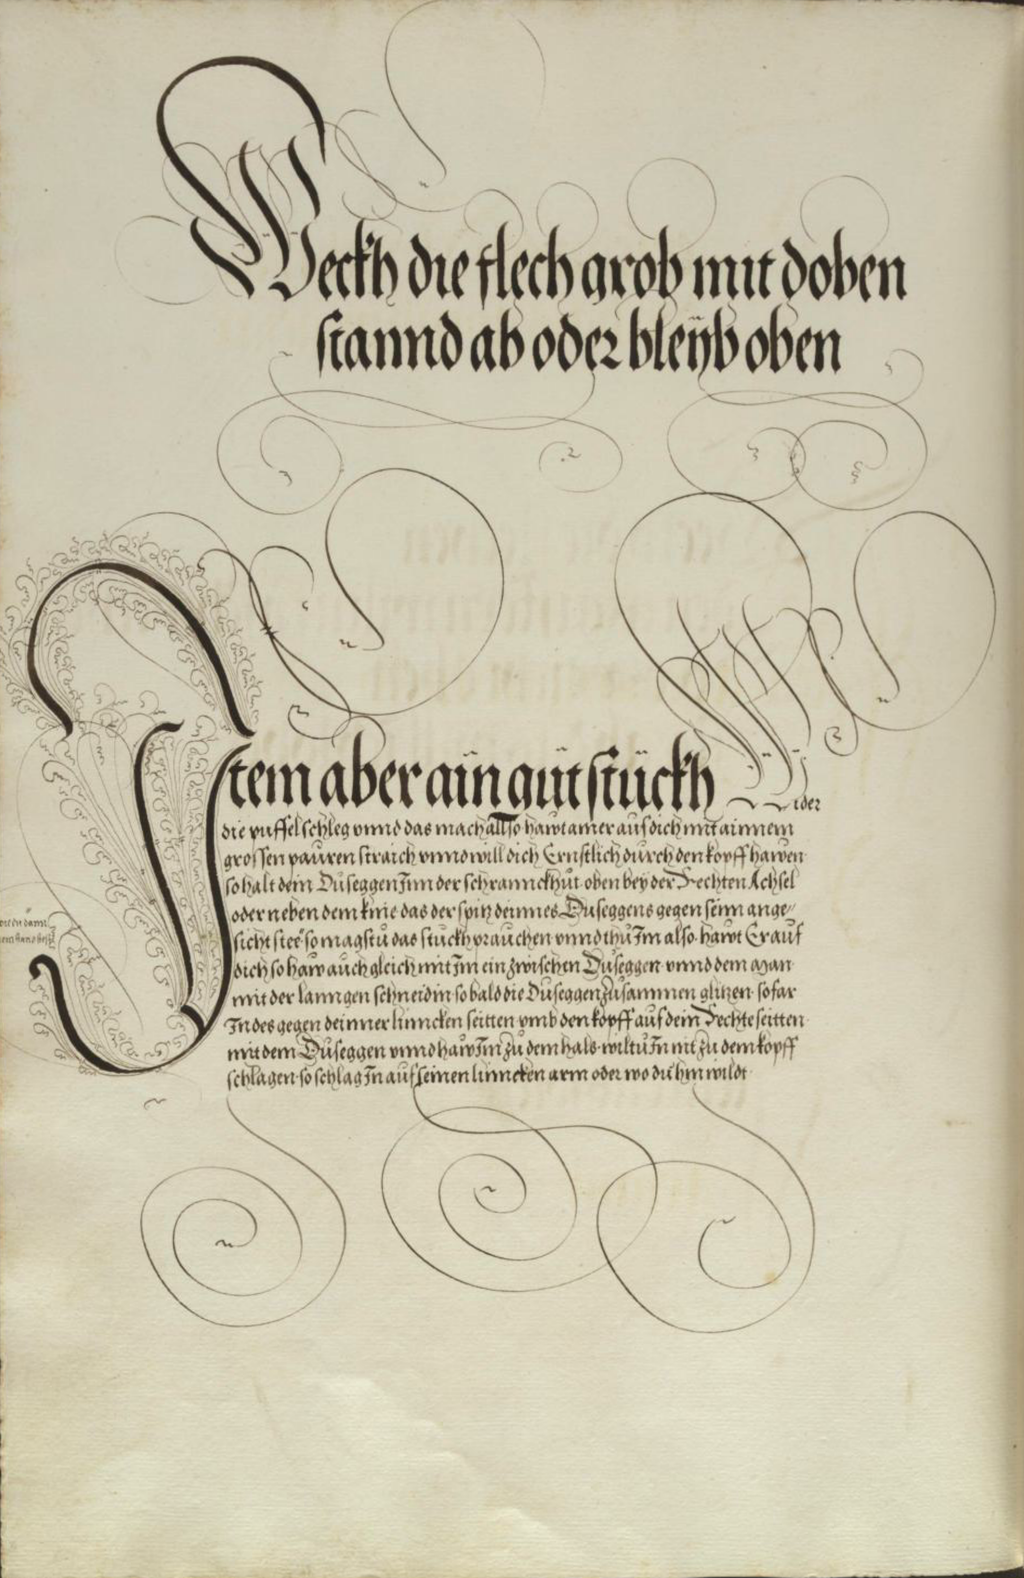 Weckh die flech grob mit doben
stannd ab oder bleÿb oben
Item aber ain gůt stückh Wider
die puffel schleg vnnd das mach allso hawt amer auf dich mit ainnem
grossen pauren straich vnnd will dich Ernstlich durch den kopff hawen
so halt dein Duseggen Inn der schrannckhůt oben bey der Rechten Achsel
oder neben dem knie das der spitz deinnes Duseggens gegen seim ange/
sicht stee so magstu das stuckh prauchen vnnd thů Im also hawt Er auf
dich so haw auch gleich mit Im ein zwischen Duseggen vnnd dem man
mit der lanngen schneid in so bald die Duseggen zusammen glitzen so far
In des gegen deinner linncken seitten vmb den kopff auf dein Rechte seitten
mit dem Duseggen vnnd haw Im zu dem hals wiltu In nit zu dem kopff
schlagen so schlag In auf seinen linncken arm oder wo du hin wildt